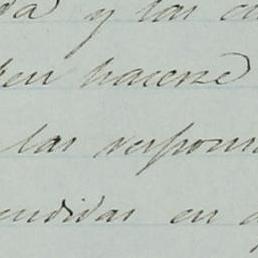 da y las ca
ben hacerse
las respons
endidas en